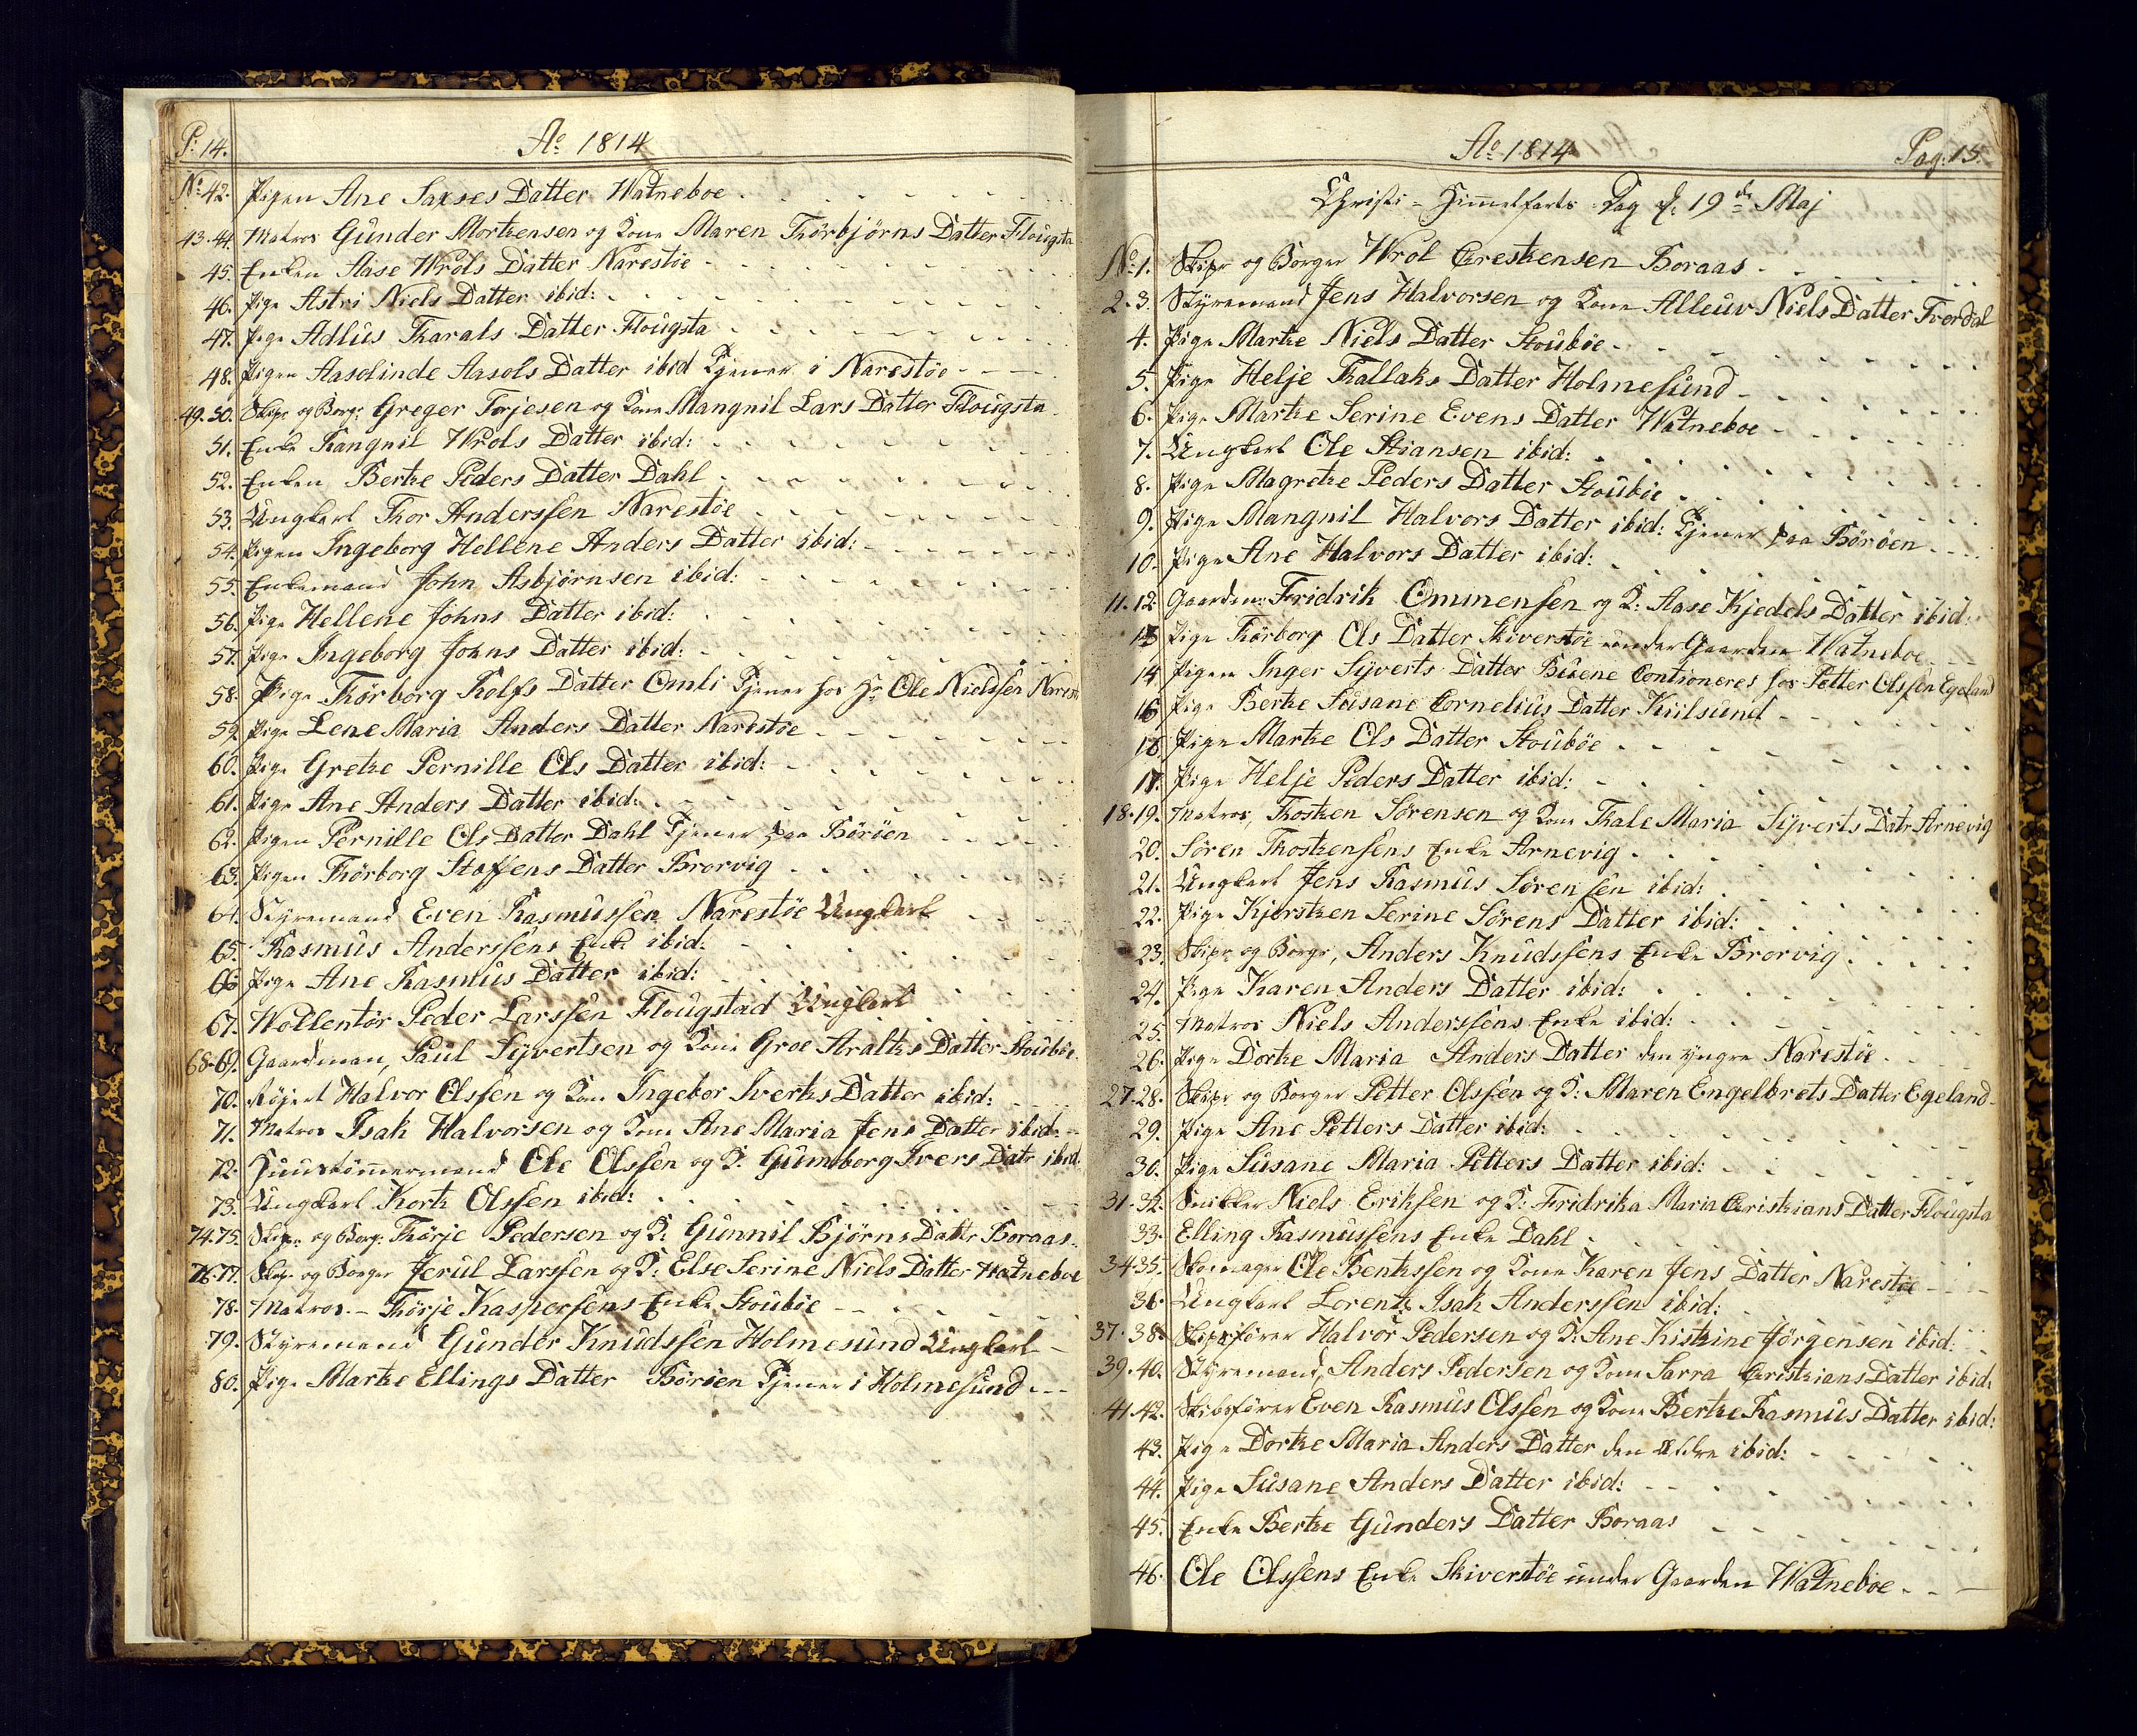 P: 14.
Ao 1814
No 42. Pigen Ane Saxses Datter Watneboe
43.44. Matros Gunder Mortensen og Kone Maren Thorbjørns Datter Flougsta
45. Enken Aase Wrols Datter Narestøe
46. Pige Astri Niels Datter ibid:
47. Pige Adlus Tharals Datter Flougsta
48. Pigen Aasolinde Aasols Datter ibid Tjener i Narestøe
49.50. Skipr og Borgr Greger Torjesen og Kone Mangnil Lars Datter Flougsta
51. Enke Rangnil Wrols Datter ibid:
52. Enken Berthe Peders Datter Dahl
53. Ungkarl Thor Anderssen Narestøe
54. Pigen Ingeborg Hellene Anders Datter ibid:
55. Enkemand John Asbjørnsen ibid:
56. Pige Hellene Johns Datter ibid:
57. Pige Ingeborg Johns Datter ibid:
58. Pige Thorborg Rolfs Datter Omli Tjener hos Hr Ole Nielssen Narest
59. Pige Lene Maria Anders Datter Narestøe
60. Pige Grethe Pernille Ols Datter ibid:
61. Pige Ane Anders Datter ibid:
62. Pigen Pernille Ols Datter Dahl Tjener paa Børøen
63. Pigen Thorborg Staffens Datter Brorvig
64. Styremand Even Rasmussen Narestøe Ungkarl
65. Rasmus Anderssens Enke ibid:
66 Pige Ane Rasmus Datter ibid:
67. Wollentør Peder Larssen Flougstad Ungkarl
68-69. Gaardman, Paul Syvertsen og Kone Groe Araldts Datter Stoubøe
70. Halvor Olssen og Kone Ingebor Iverts Datter ibid:
71. Matros Isak Halvorsen og Kone Ane Maria Jens Datter ibid:
72. Huustømmermand Ole Olssen og K: Gumborg Ivers Datr ibid
73. Ungkarl Kort Olssen ibid:
74.75. Skipr og Borgr Thorje Pedersen og K: Gunnil Bjørns Datter Boraas
76.77. Skipr og Borger Jerul Larssen og K: Else Serine Niels Datter Watneboe
78. Matros Thorje Kaspersens Enke Stoubøe
79. Styremand Gunder Knudssen Holmesund Ungkarl
80. Pige Marthe Ellings Datter Børøen Tjener i Holmesund
Ao 1814
Pag: 15.
Christi-Himmelfarts Dag d: 19de Maj
No 1. Skipr og Borger Wrol Crestensen Boraas
2.3. Styremand Jens Halvorsen og Kone Alleuv Niels Datter Tverdal
4. Pige Marthe Niels Datter Stoubøe
5. Pige Helje Tallaks Datter Holmesund
6. Pige Marthe Serine Evens Datter Watneboe
7. Ungkarl Ole Stiansen ibid:
8. Pige Magrethe Peders Datter Stoubøe
9. Pige Mangnil Halvors Datter ibid: Tjener paa Børøen
10. Pige Ane Halvors Datter ibid:
11.12 Gaardm: Fridrik Ommensen og K: Aase Kjedels Datter ibid:
13 Pige Thorborg Ols Datter Skiverstøe under Gaarden Watneboe
14 Pigen Inger Syverts Datter Buene Contioneres hos Petter Olssen Egeland
15 Pige Berthe Susane Cornelius Datter Kiilsund
16. Pige Marthe Ols Datter Stoubøe
17. Pige Helje Peders Datter ibid:
18.19. Matros, Thosten Sørensen og Kone Thale Maria Syverts Datr Arnevig
20. Søren Thostensens Enke Arnevig
21. Ungkarl Jens Rasmus Sørensen ibid:
22. Pige Kjersten Serine Sørens Datter ibid:
23. Skipr og Borgr, Anders Knudssens Enke Brorvig
24. Pige Karen Anders Datter ibid:
25. Matros Niels Anderssens Enke ibid:
26. Pige Dorthe Maria Anders Datter den yngre Narestøe
27.28. Skipr og Borger Petter Olssen og K: Maren Engelbrets Datter Egeland
29. Pige Ane Petters Datter ibid:
30. Pige Susane Maria Petters Datter ibid:
31.32. Snikker Niels Eriksen og K: Fridrika Maria Christians Datter Flougsta
33. Elling Rasmussens Enke Dahl
34.35. Skomager Ole Bentssen og Kone Karen Jens Datter Narestøe
36. Ungkarl Lorents Isak Anderssen ibid:
37.38. Skipsfører Halvor Pedersen og K: Ane Kistine Jørgensen ibid:
39.40. Styremand, Anders Pedersen og Kone Sarra Christians Datter ibid:
41.42. Skibsfører Even Rasmus Olssen og Kone Berthe Rasmus Datter ibid:
43. Pige Dorthe Maria Anders Datter den Ældre ibid:
44. Pige Susane Anders Datter ibid:
45. Enke Berthe Gunders Datter Boraas
46. Ole Olssens Enke Skiverstøe under Gaarden Watneboe